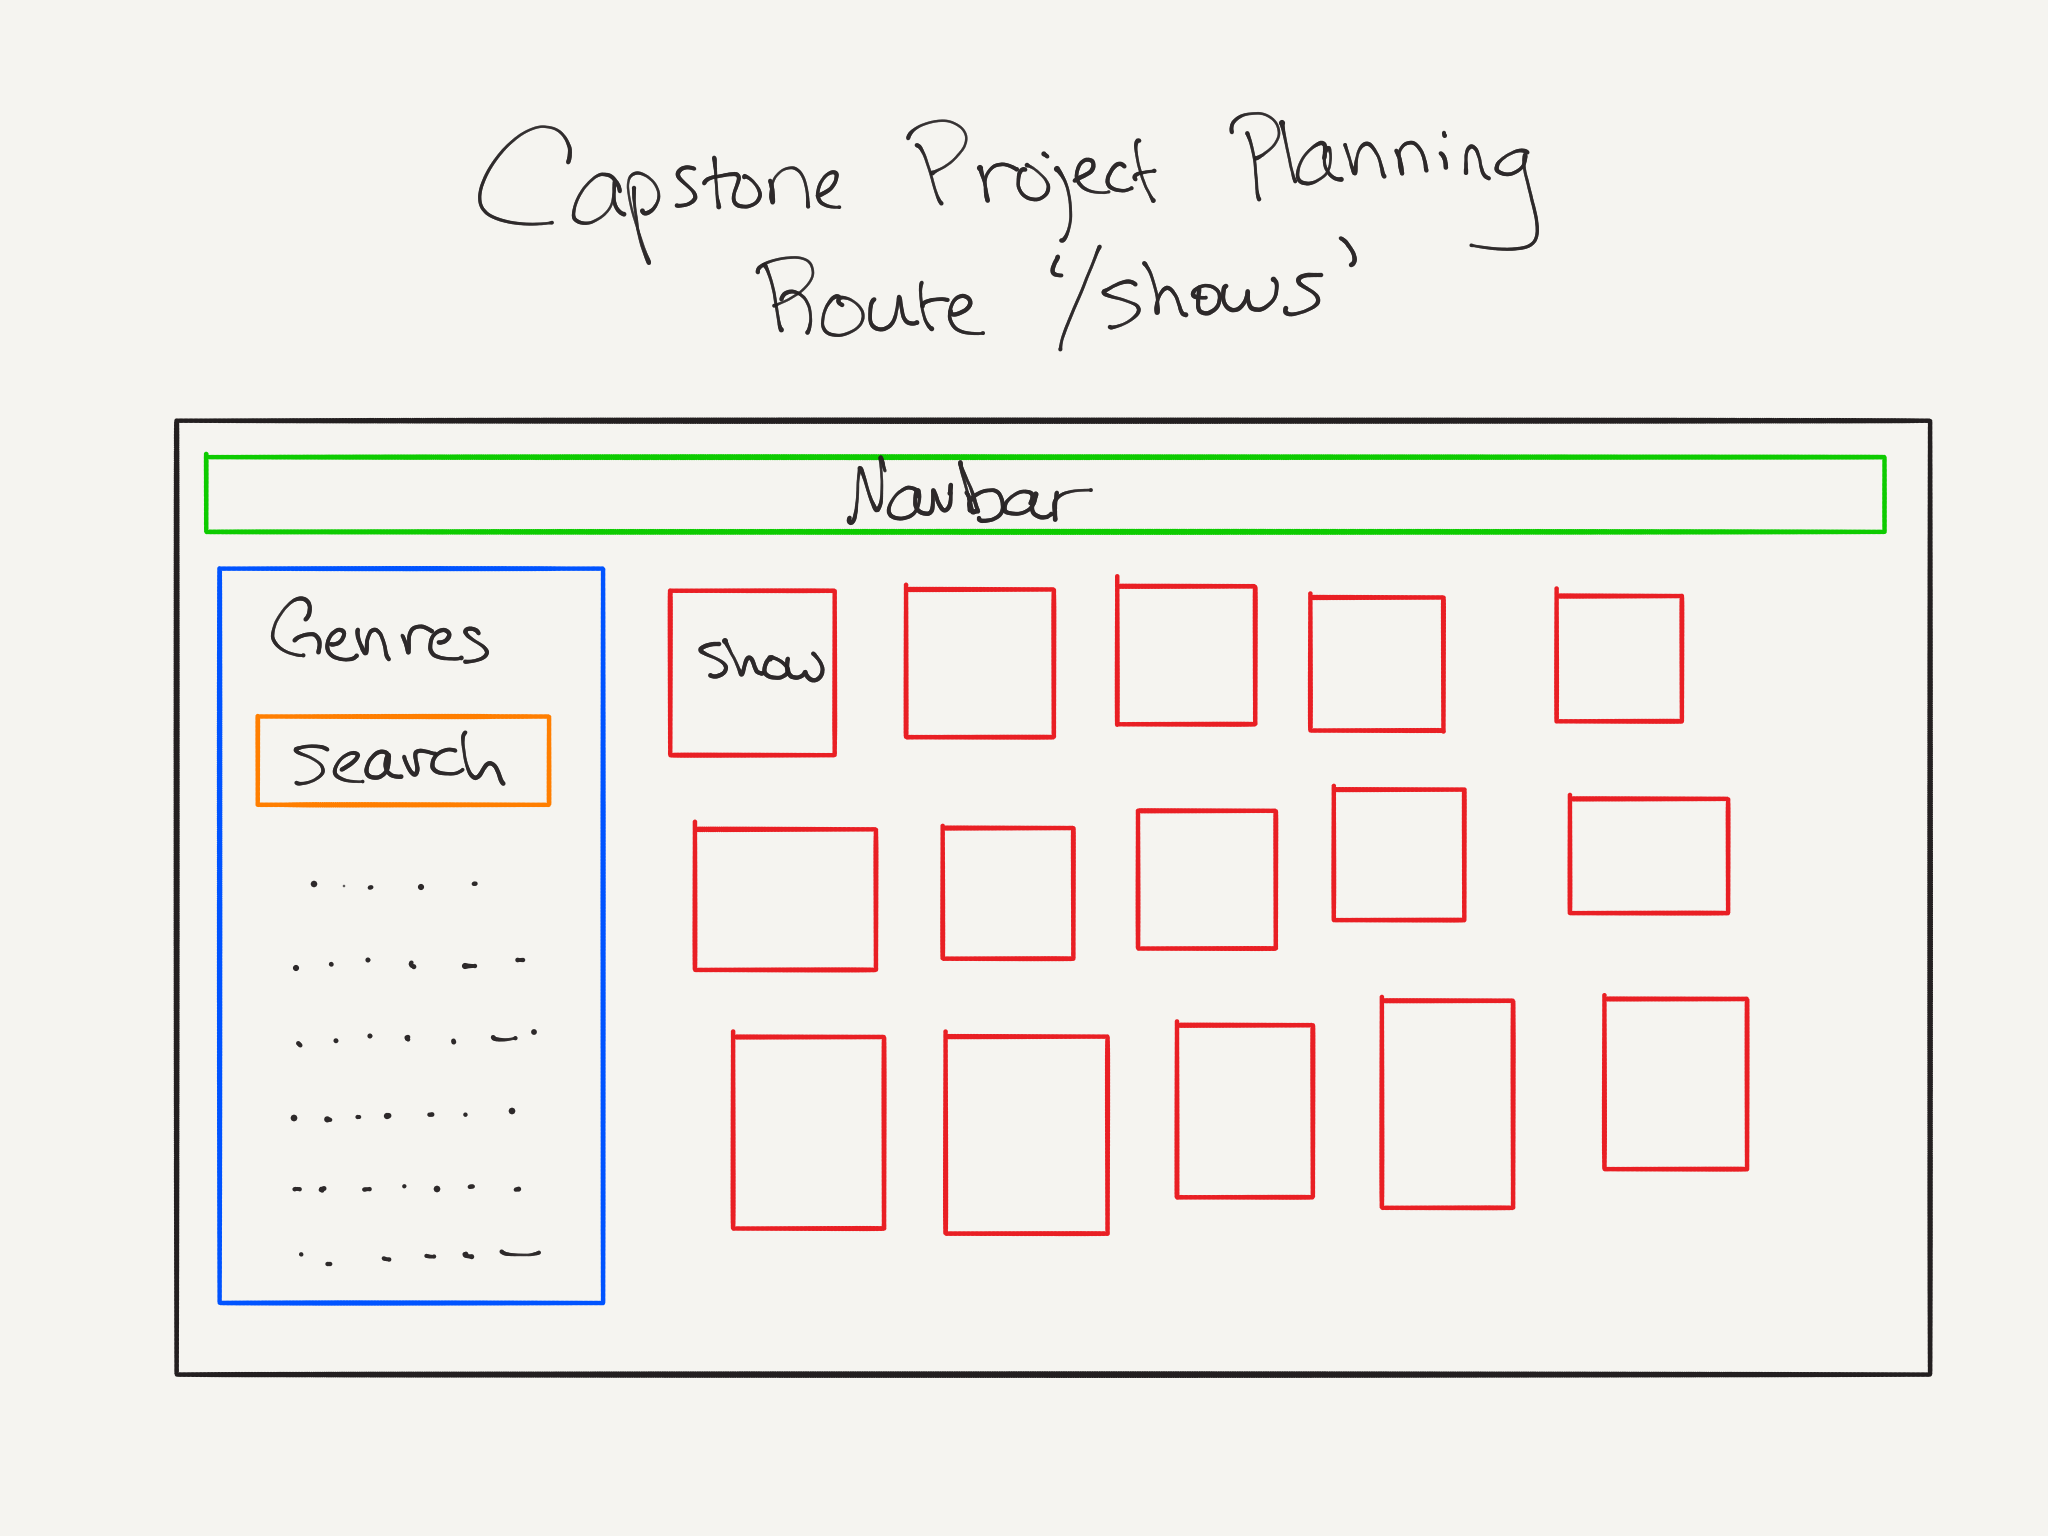 Capstone Project Planning
Route '/shows'
Navbar
Genres
show
search